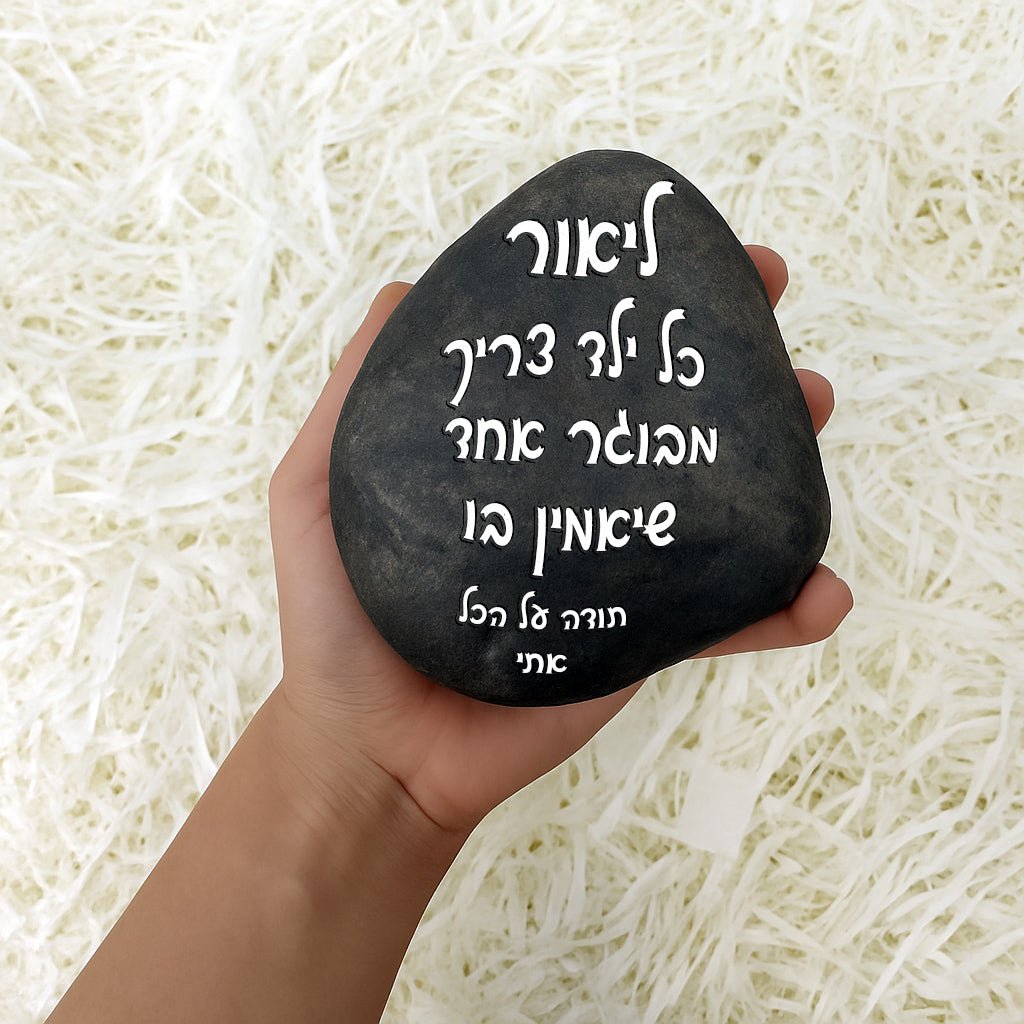 ליאור
כל ילד צריך
מבוגר אחד
שיאמין בו
תודה על הכל
אתי